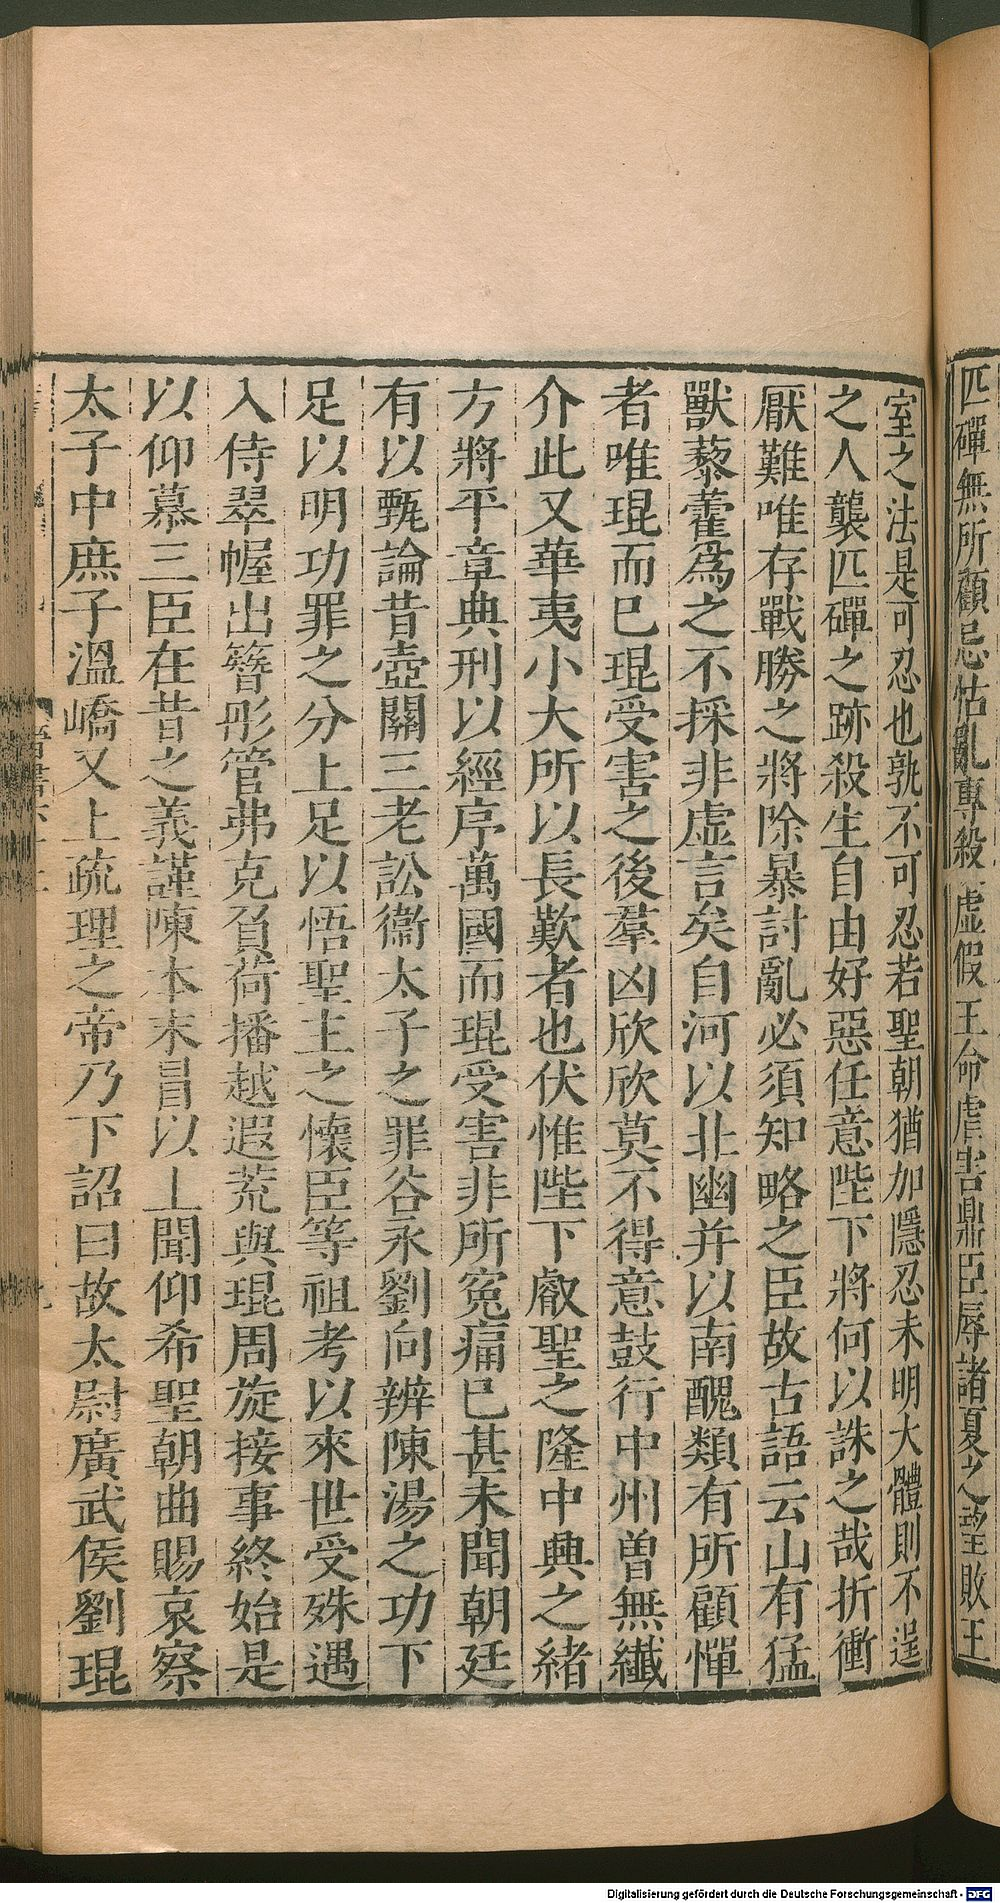 匹磾無所顧忌怙亂專殺虛假王命虐害鼎臣辱諸夏之望敗王
室之法是可忍也孰不可忍若聖朝猶加隱忍未明大體則不逞
之人襲匹磾之跡殺生自由好惡任意陛下將何以誅之哉折衝
厭難唯存戰勝之將除暴討亂必須知略之臣故古語云山有猛
獸藜藿爲之不採非虛言矣自河以北幽并以南醜類有所顧憚
者唯琨而已琨受害之後羣凶欣欣莫不得意鼓行中州曾無纖
介此又華夷小大所以長歎者也伏惟陛下叡聖之隆中興之緒
方將平章典刑以經序萬國而琨受害非所寃痛已甚未聞朝廷
有以甄論昔壺關三老訟衞太子之罪谷永劉向辨陳湯之功下
足以明功罪之分上足以悟聖主之懷臣等祖考以來世受殊遇
入侍翠幄出簪彤管弗克負荷播越遐荒與琨周旋接事終始是
以仰慕三臣在昔之義謹陳本末冒以上聞仰希聖朝曲賜哀察
太子中庶子溫嶠又上疏理之帝乃下詔曰故太尉廣武侯劉琨
Digitalisierung gefördert durch die Deutsche Forschungsgemeinschaft - DFG